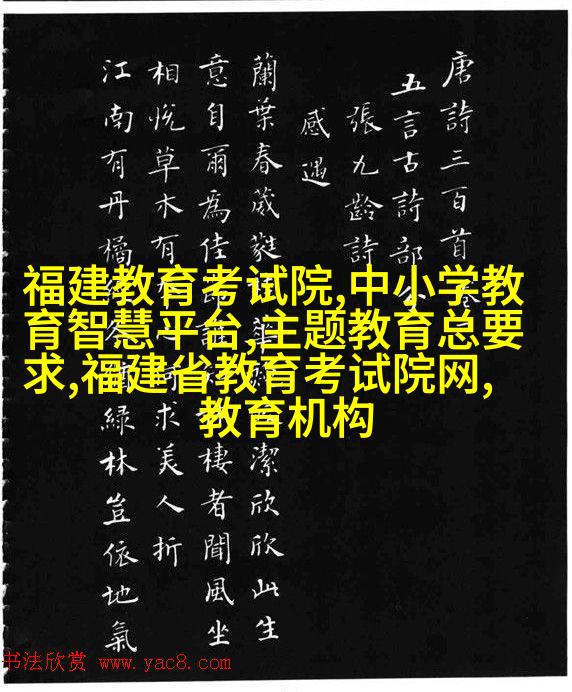 唐詩三百首
五言古詩部
張九齡詩
感遇
蘭葉春葳蕤華潔欣欣此生
意自爾為佳棲者聞風坐
相悅草木有求美人折
江南有丹橘綠林豈依地氣
福建教育考试院,中小学教
育智慧平台,主题教育总要
求,福建省教育考试院网,
教育机构
书法欣赏 www.yac8.com